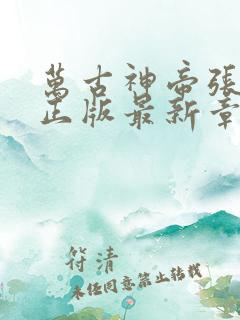 萬古神帝張
正版最新章
符清
未经同意禁止转载